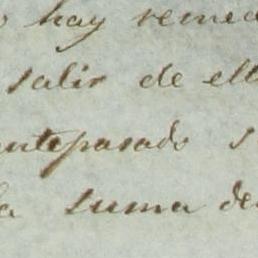 hay remed
salir de ell
antepasado s
la suma de